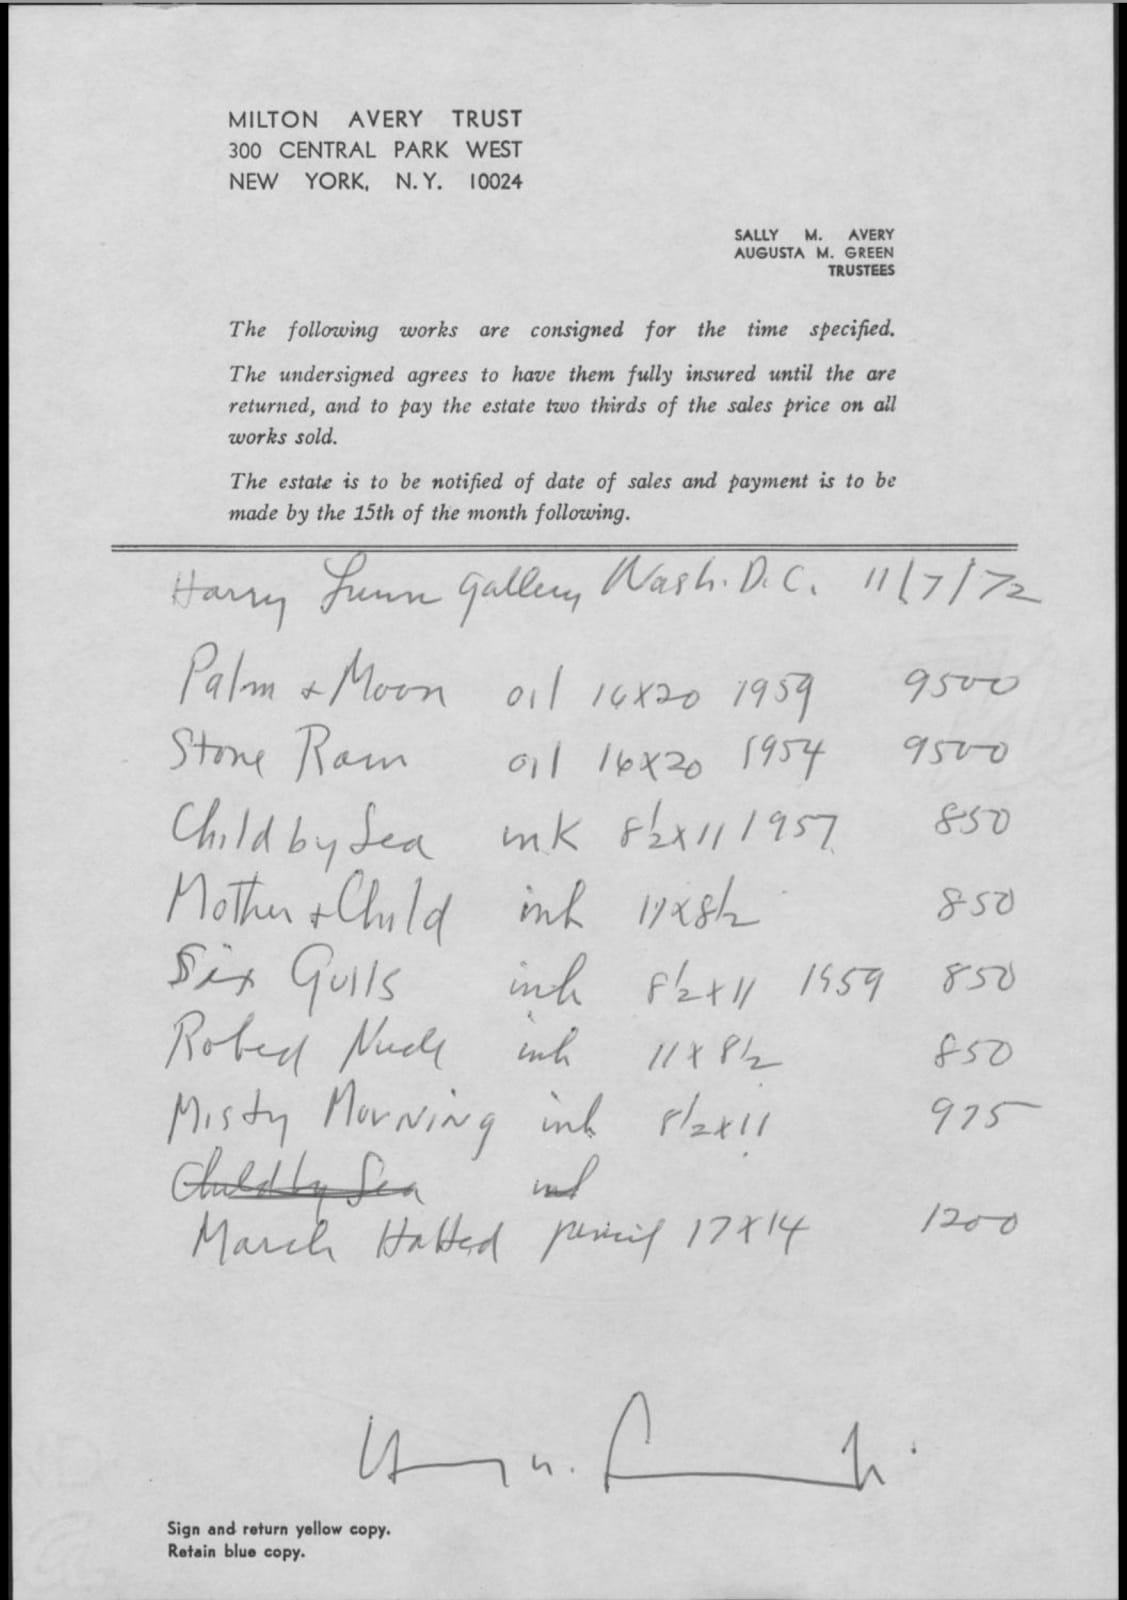 MILTON AVERY TRUST
300 CENTRAL PARK WEST
NEW YORK, N.Y. 10024
SALLY M. AVERY
AUGUSTA M. GREEN
TRUSTEES
The following works are consigned for the time specified.
The undersigned agrees to have them fully insured until the are
returned, and to pay the estate two thirds of the sales price on all
works sold.
The estate is to be notified of date of sales and payment is to be
made by the 15th of the month following.
Harry Lunn Gallery Wash. D.C. 11/7/72
Palm + Moon oil 16x20 1959 9500
Stone Ram oil 16x20 1954 9500
Child by Sea ink 8½x11 1957 850
Mother + Child ink 11x8½ 850
Six Gulls ink 8½x11 1959 850
Robed Nude ink 11x8½ 850
Misty Morning ink 8½x11 975
Child by Sea ink
March Hatted pencil 17x14 1200
Sign and return yellow copy.
Retain blue copy.